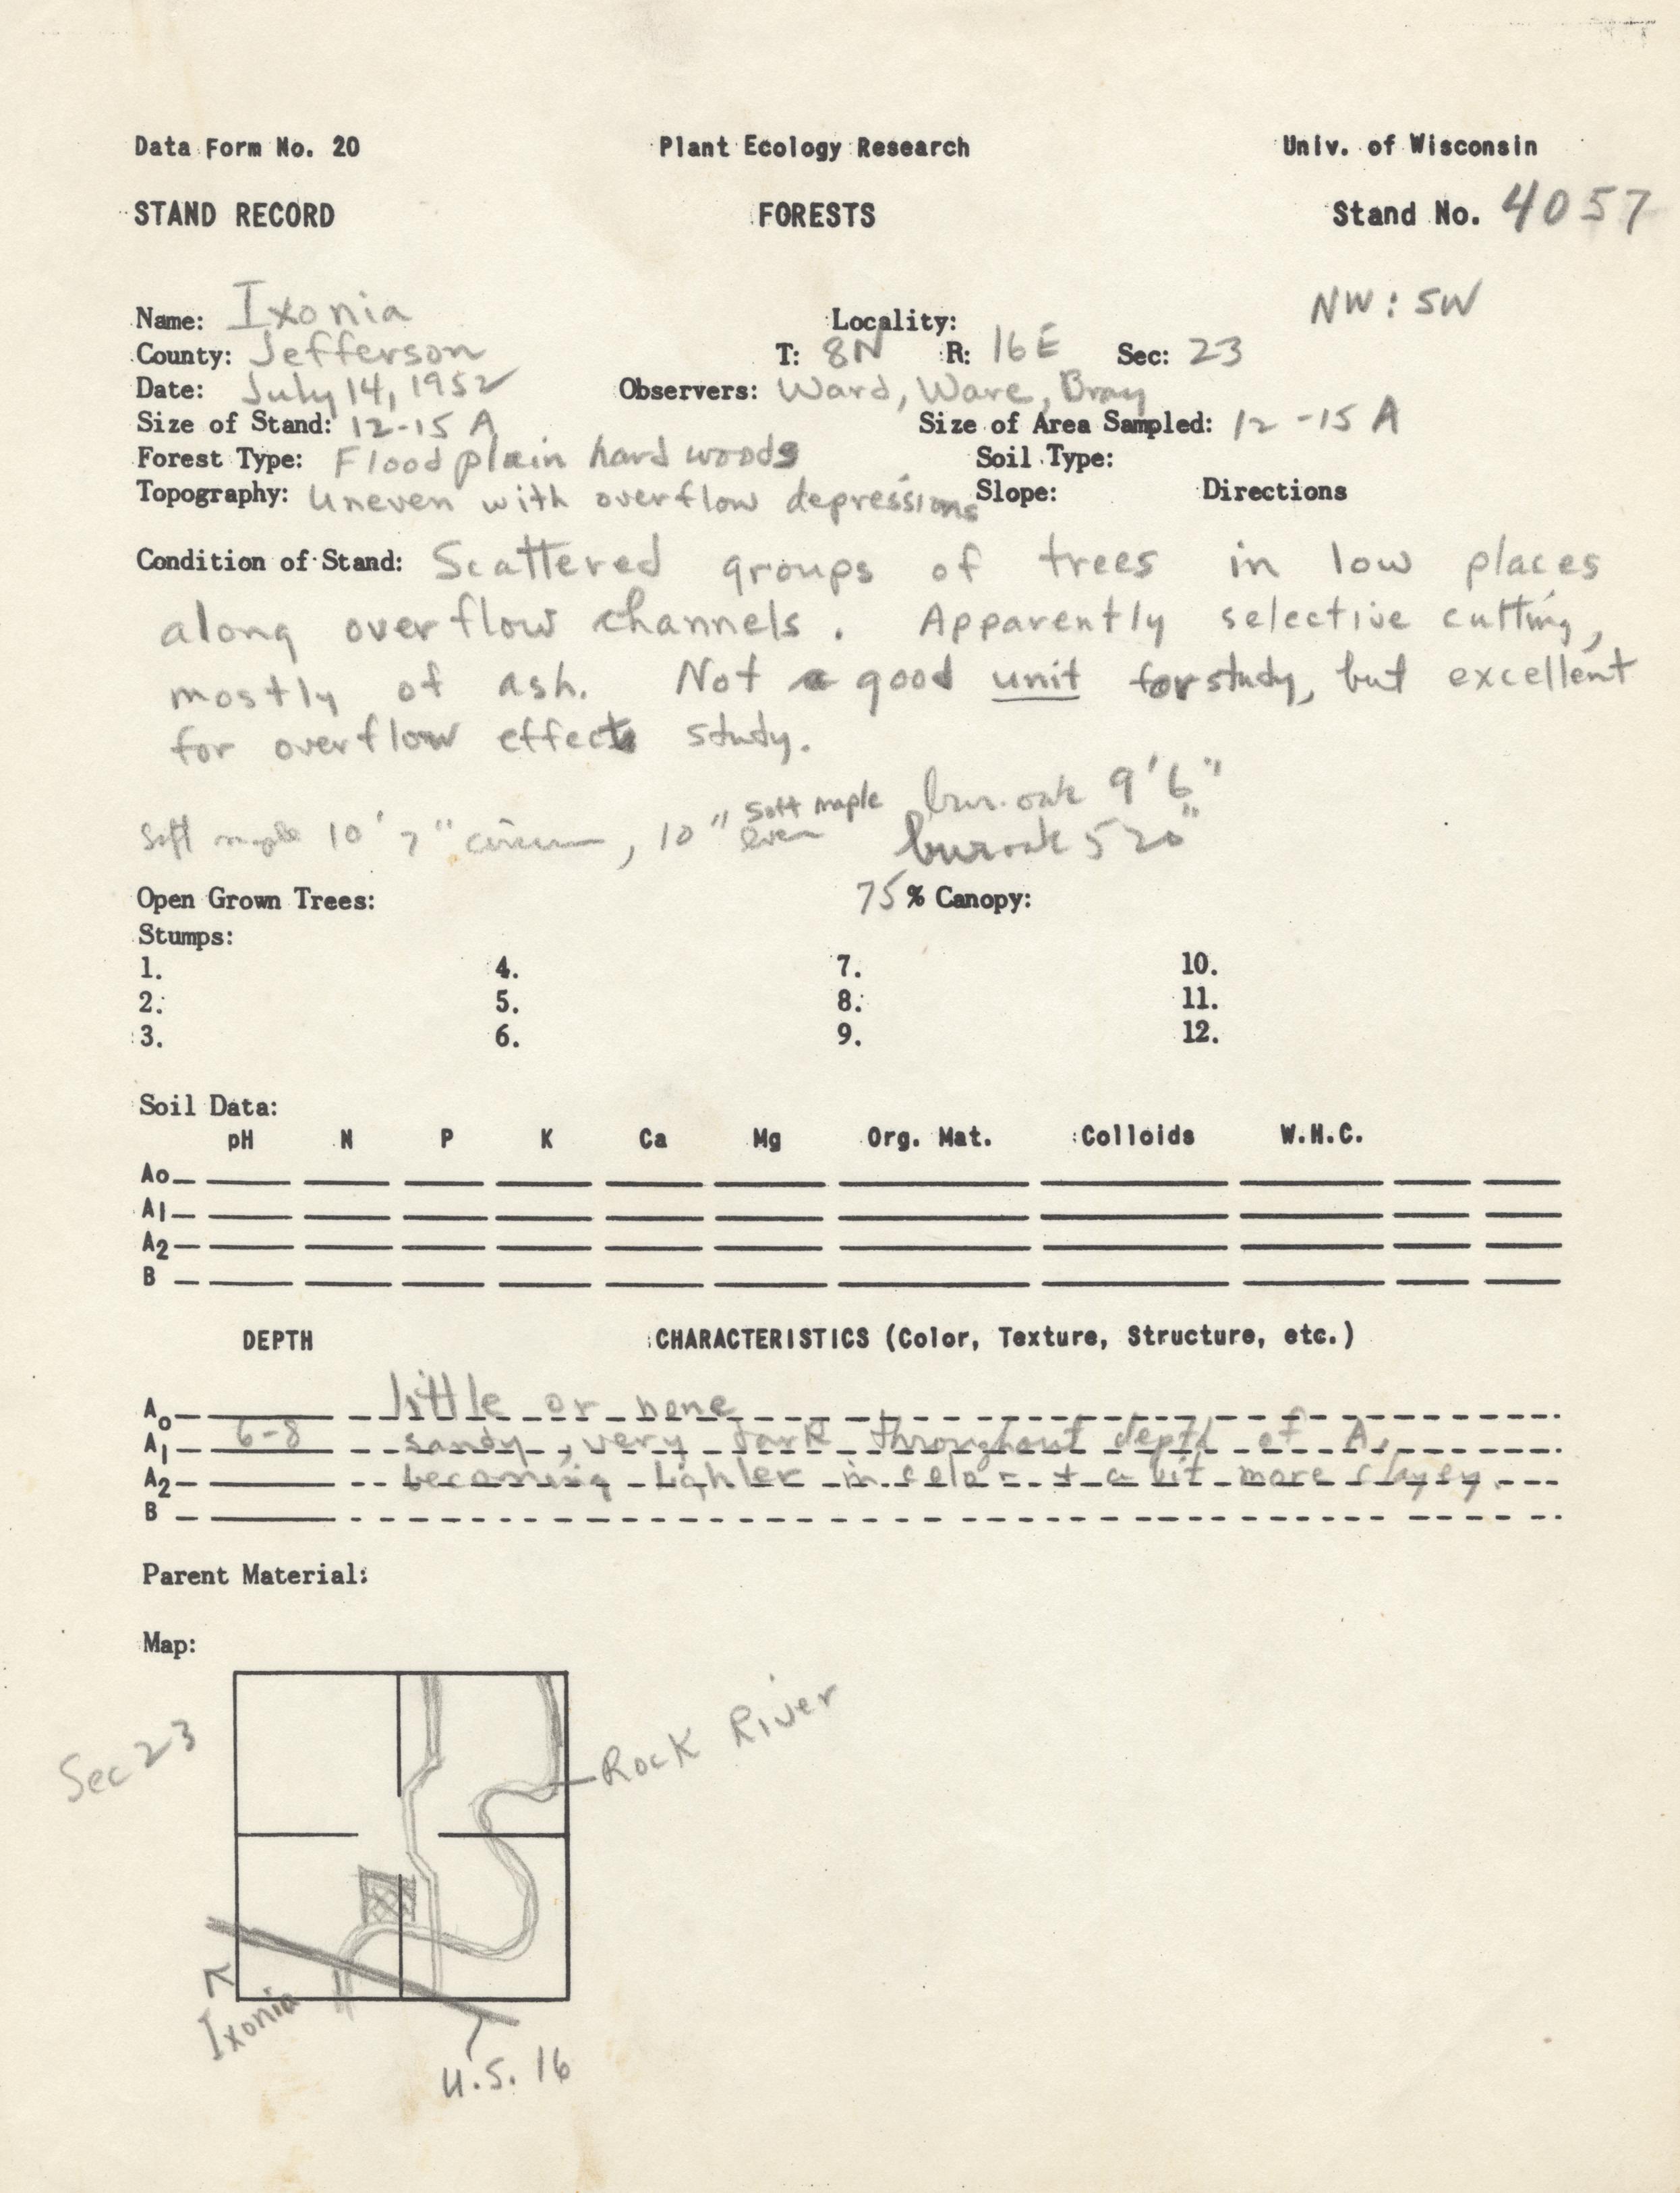 Data Form No. 20 Plant Ecology Research Univ. of Wisconsin
STAND RECORD FORESTS Stand No. 4057
NW: SW
Name: Ixonia Locality:
County: Jefferson T: 8N R: 16E Sec: 23
Date: July 14, 1952 Observers: Ward, Ware, Bray
Size of Stand: 12-15 A Size of Area Sampled: 12-15 A
Forest Type: Flood plain hard woods Soil Type:
Topography: Uneven with overflow depressions Slope: Directions
Condition of Stand: Scattered groups of trees in low places
along overflow channels. Apparently selective cutting,
mostly of ash. Not a good unit for study, but excellent
for overflow effects study.
Soft maple 10' 7" circum, 10" soft maple bur oak 9'6"
bur oak 5 20"
Open Grown Trees: 75% Canopy:
Stumps:
1. 4. 7. 10.
2. 5. 8. 11.
3. 6. 9. 12.
Soil Data:
pH N P K Ca Mg Org. Mat. Colloids W.H.C.
Ao
A1
A2
B
DEPTH CHARACTERISTICS (Color, Texture, Structure, etc.)
Ao little or none
A1 6-8 sandy, very dark throughout depth of A,
A2 becoming lighter in color + a bit more clayey.
B
Parent Material:
Map:
Sec 23
Rock River
Ixonia
U.S. 16